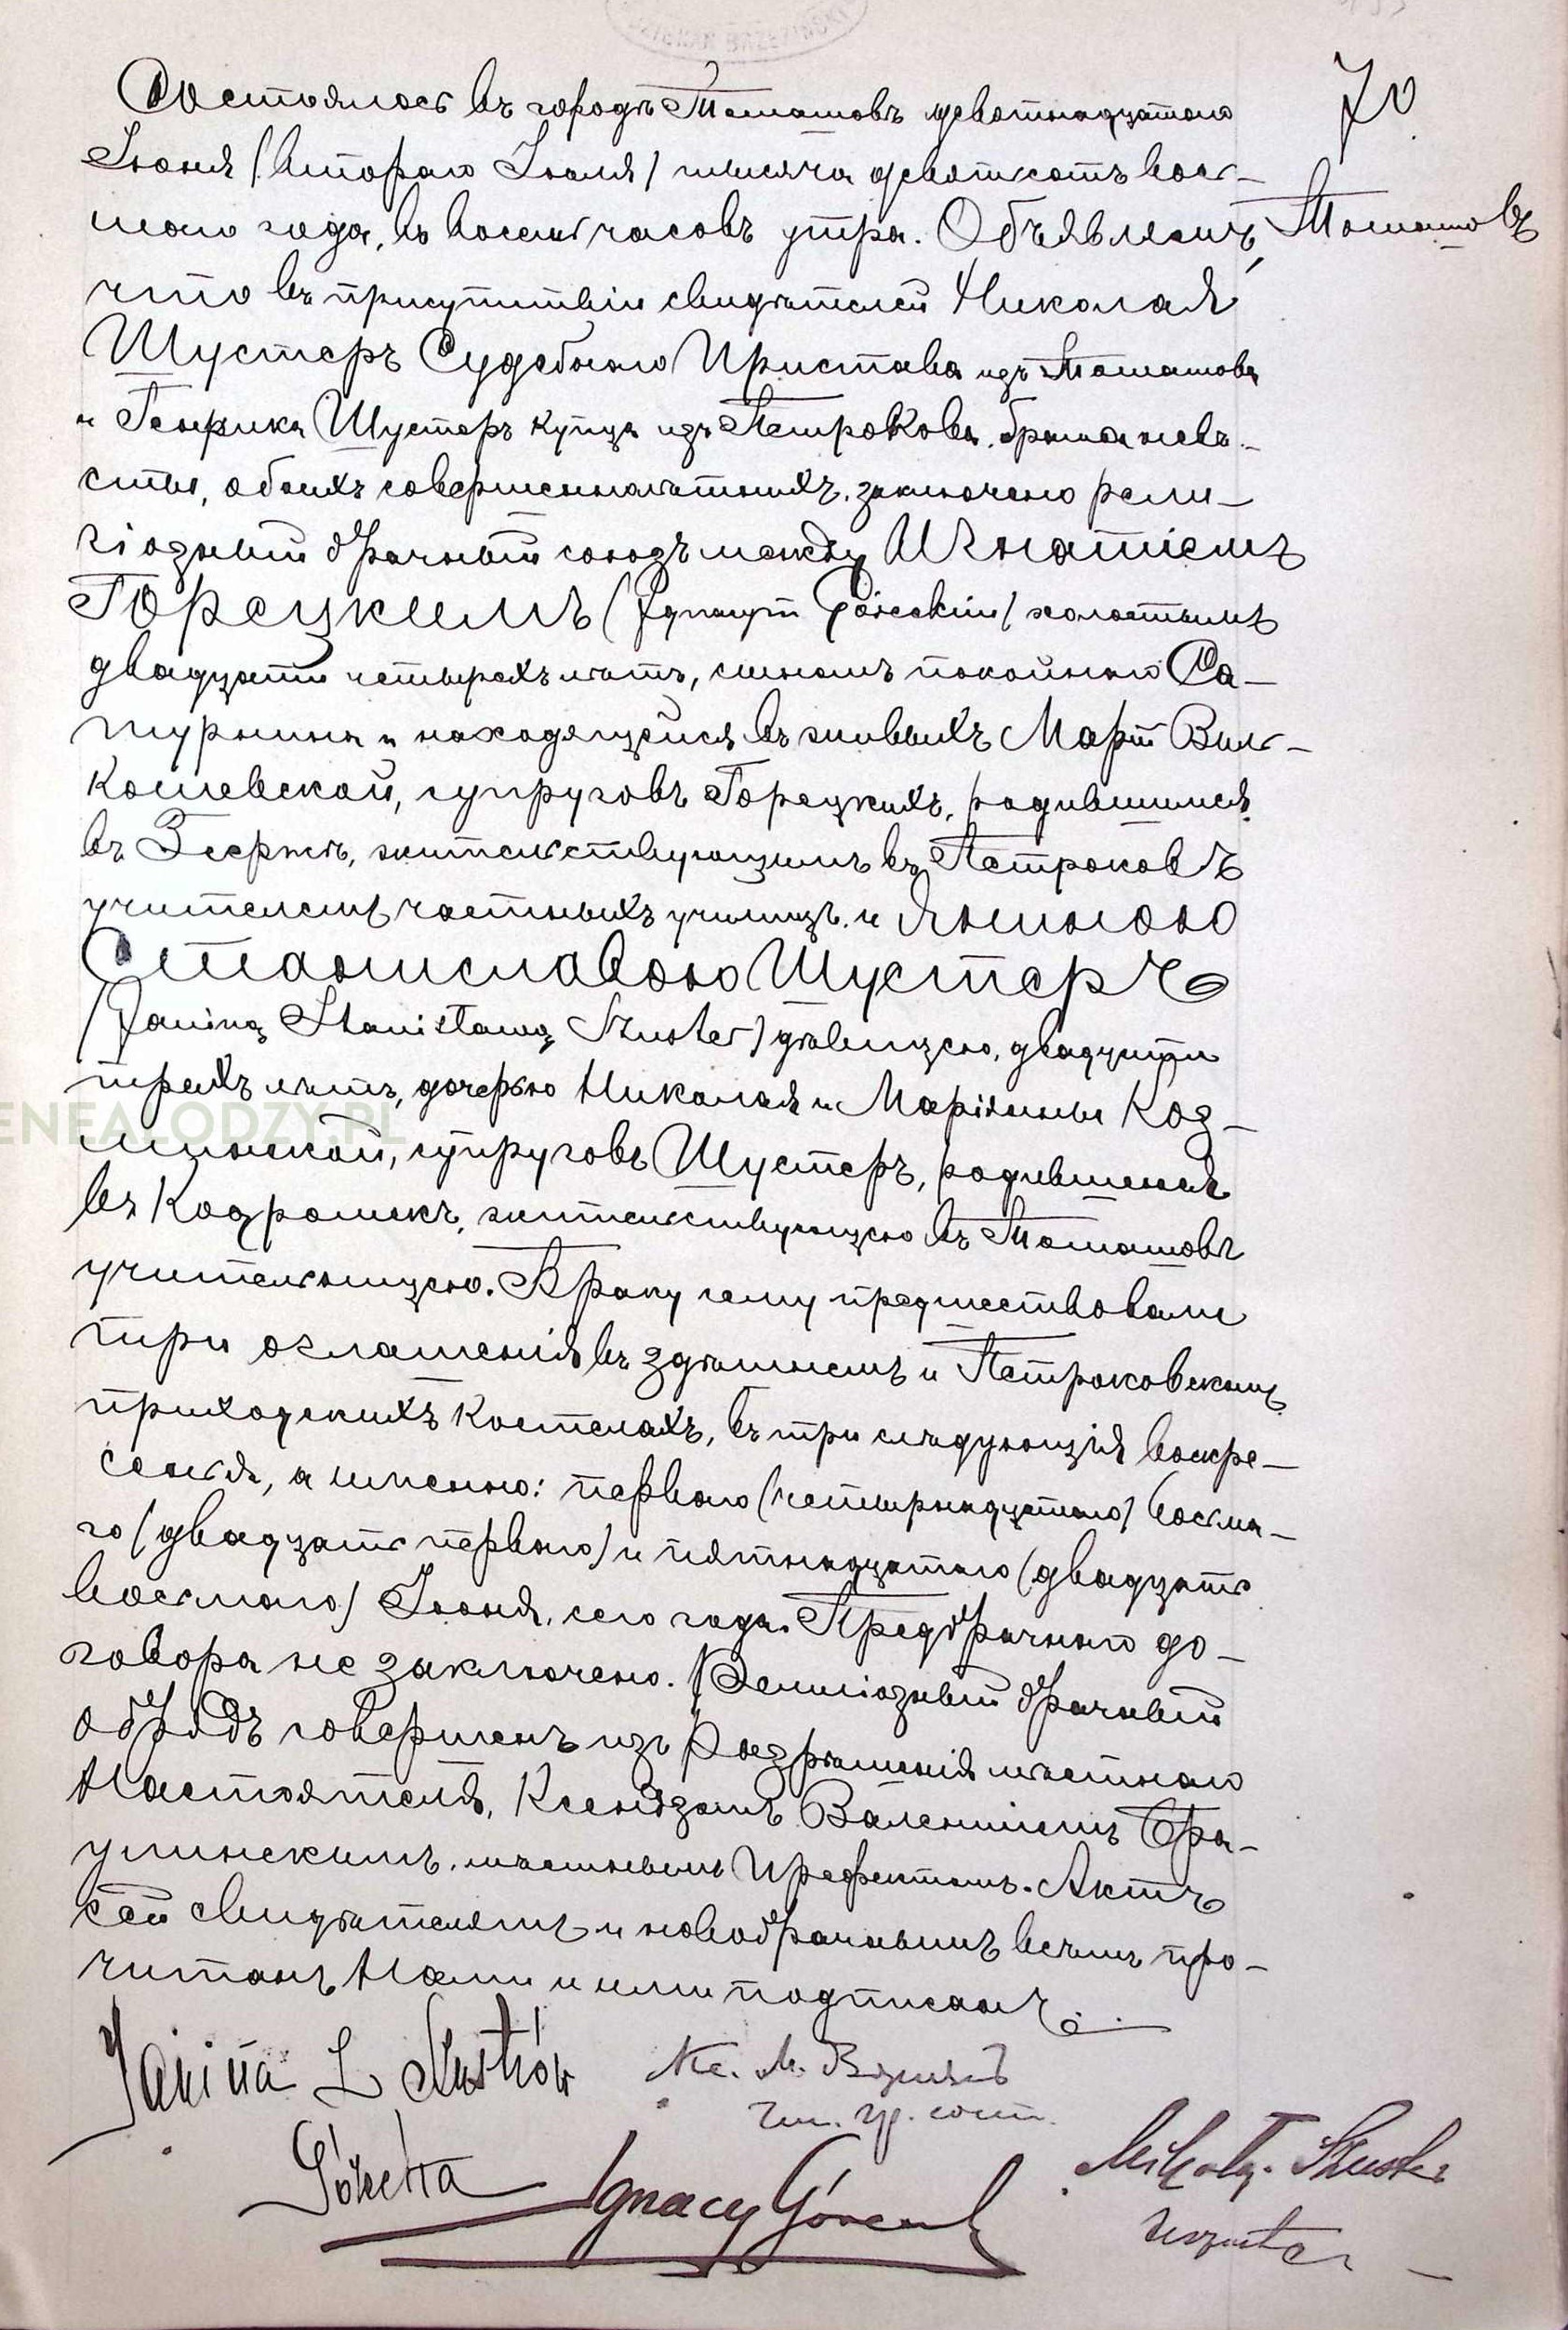 70
Томашовъ
Состоялось въ городѣ Томашовѣ девятнадцатаго
Іюня (второго Іюля) тысяча девятьсотъ вось-
мого года, въ восемь часовъ утра. Объявляемъ,
что въ присутствіи свидѣтелей Николая
Шустеръ Судебного Пристава изъ Томашова
и Генрика Шустеръ купца изъ Петрокова, брата невѣ-
сты, обоихъ совершеннолѣтнихъ, заключено рели-
гіозный брачный союзъ между Игнатіемъ
Горецкимъ (Góreckim) холостымъ
двадцати четырехъ лѣтъ, сыномъ покойного Са-
турнина и находящейся въ живыхъ Марты Виль-
кошевской, супруговъ Горецкихъ, родившимся
въ Згержѣ, жительствующимъ въ Петроковѣ
учителемъ частныхъ училищъ, и Яниною
Станиславою Шустеръ
(Janiną Stanisławą Szuster) дѣвицею, двадцати
трехъ лѣтъ, дочерью Николая и Маріанны Коз-
минской, супруговъ Шустеръ, родившеюся
въ жительствующею въ Томашовѣ
учительницею. Браку сему предшествовали
три оглашенія въ здѣшнемъ и Петроковскомъ
приходскихъ костелахъ, въ три слѣдующія воскре-
сенья, а именно: первого (четырнадцатого) восьма-
го (двадцать первого) и пятнадцатого (двадцать
восьмого) Іюня, сего года. Предбрачного до-
говора не заключено. Религіозный брачный
обрядъ совершенъ изъ разрѣшенія мѣстного
Настоятеля, Ксендзомъ Валентіемъ
мѣстнымъ Префектомъ. Актъ
сей свидѣтелямъ и новобрачнымъ всѣмъ про-
читанъ Нами и ими подписанъ.
Janina z Szustrów
Кс. М.
Górecka
Ignacy Górecki
Mikołaj Szuster